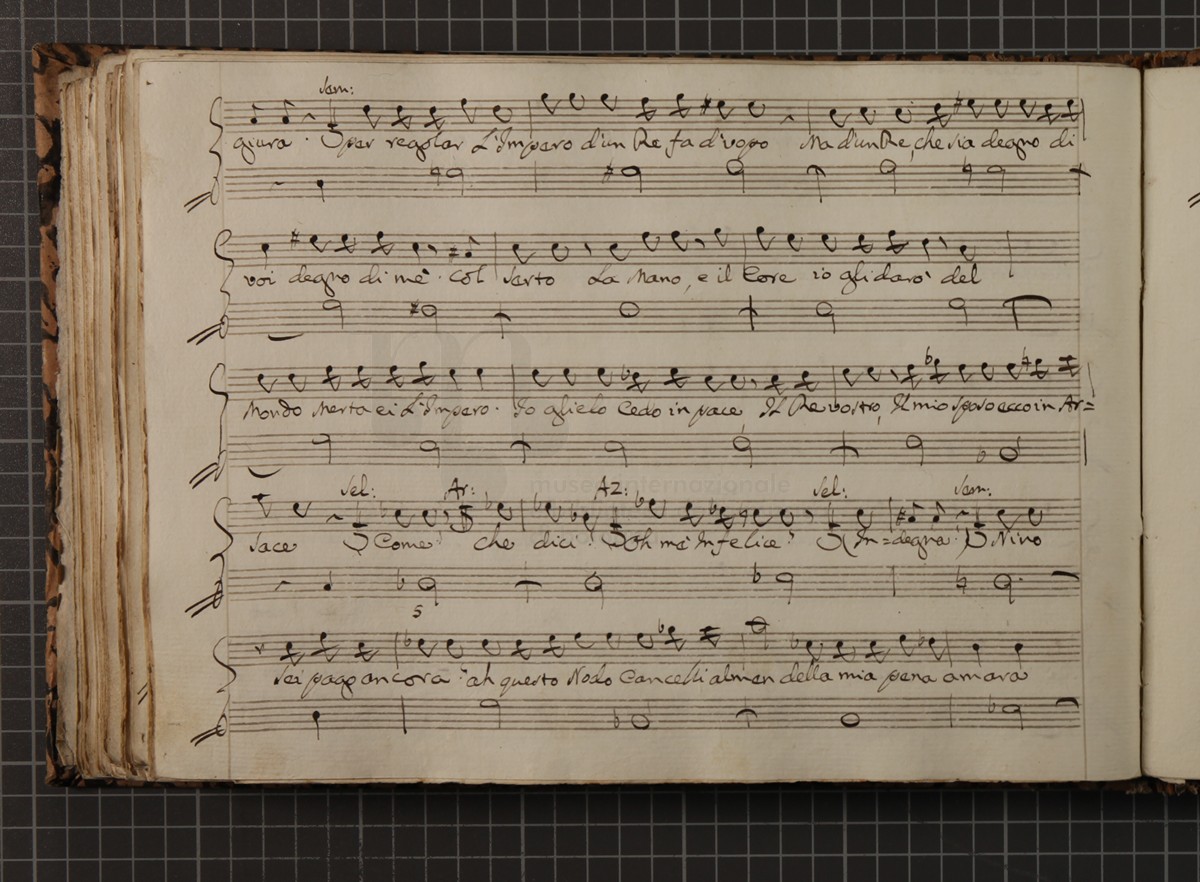 Sem:
giura. per regolar L'Impero d'un Re fa d'uopo Ma d'un Re, che sia degno di
voi degno di mè. Col Serto La Mano, e il Core io gli darò del
Mondo Merta ei L'Impero. Io glielo Cedo in pace Il Re vostro, Il mio sposo ecco in Ar=
museo internazionale
Sel: Ar: Az: Sel: Sem:
sace Come? che dici? Oh me Infelice? (In=degna.) Nino
5
sei pago ancora? ah questo Nodo Cancelli almen della mia pena amara